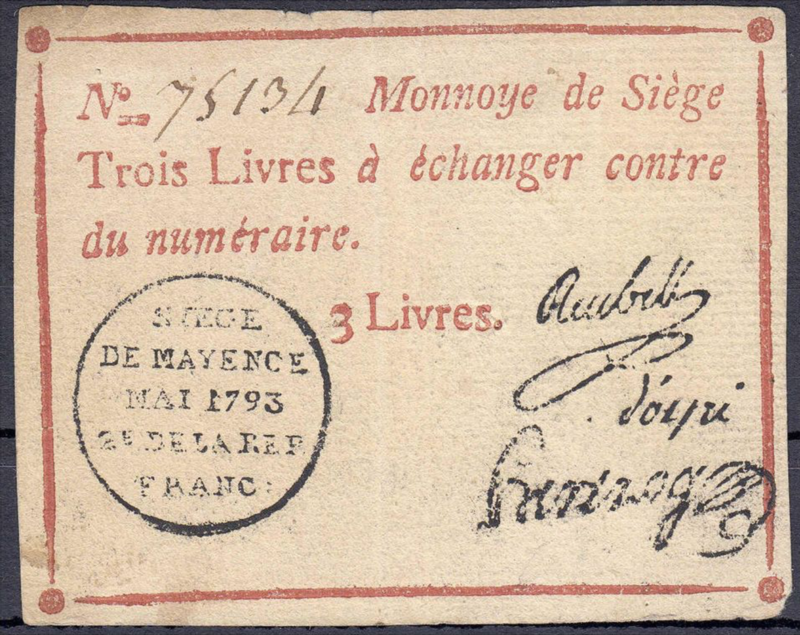 No 75134 Monnoye de Siège
Trois Livres à échanger contre
du numéraire.
3 Livres.
SIEGE
DE MAYENCE
MAI 1793
2E DE LA REP
FRANC:
d'oyré